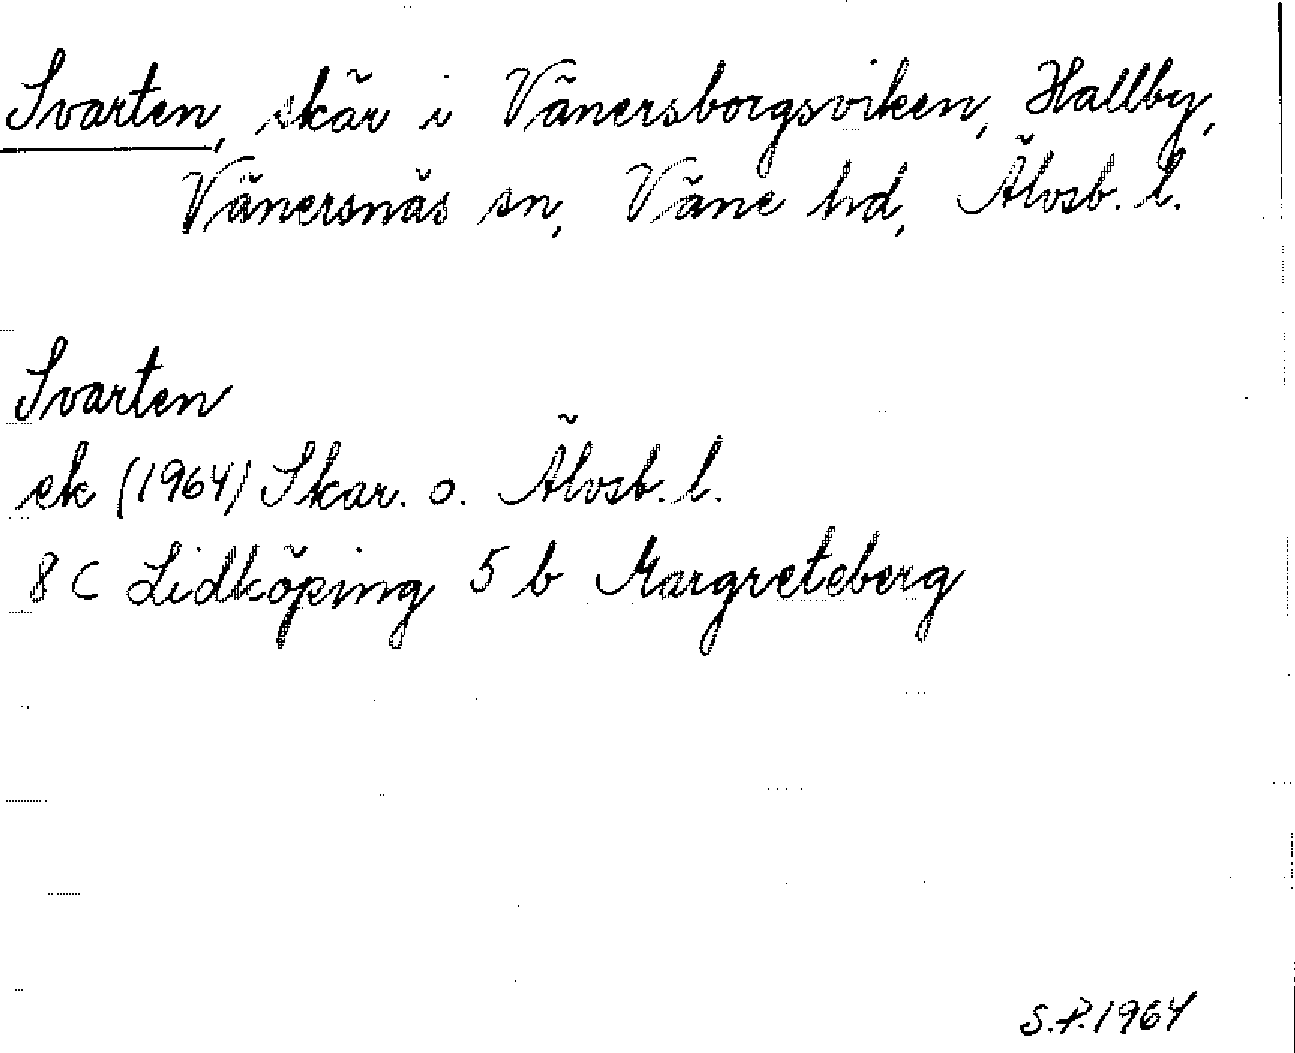 Svarten, skär i Vänersborgsviken, Hallby,
Vänersnäs sn, Väne hd, Älvsb. l.
Svarten
ek (1964) Skar. o. Älvsb. l.
8 C Lidköping 5 b Margreteberg
S.P. 1964